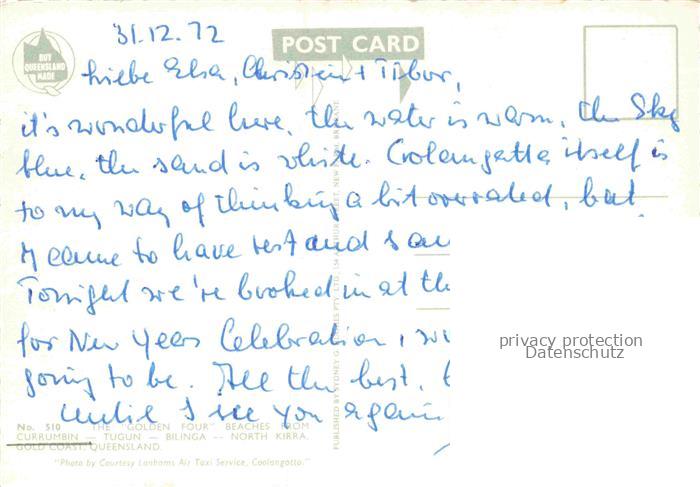 31.12.72
POST CARD
BUY
QUEENSLAND
MADE
Liebe Elsa, Christein + Tibor,
it's wonderful here, the water is warm, the Sky
blue, the sand is white. Coolangatta itself is
to my way of thinking a bit overrated, but
I came to have rest and
Tonight we're booked in at th
for New Years Celebration,
going to be. All the best,
until I see you again
privacy protection
Datenschutz
No. 510 THE "GOLDEN FOUR" BEACHES FROM
CURRUMBIN — TUGUN — BILINGA — NORTH KIRRA,
GOLD COAST, QUEENSLAND.
"Photo by Courtesy Lanhams Air Taxi Service, Coolangatta."
PUBLISHED BY SYDNEY